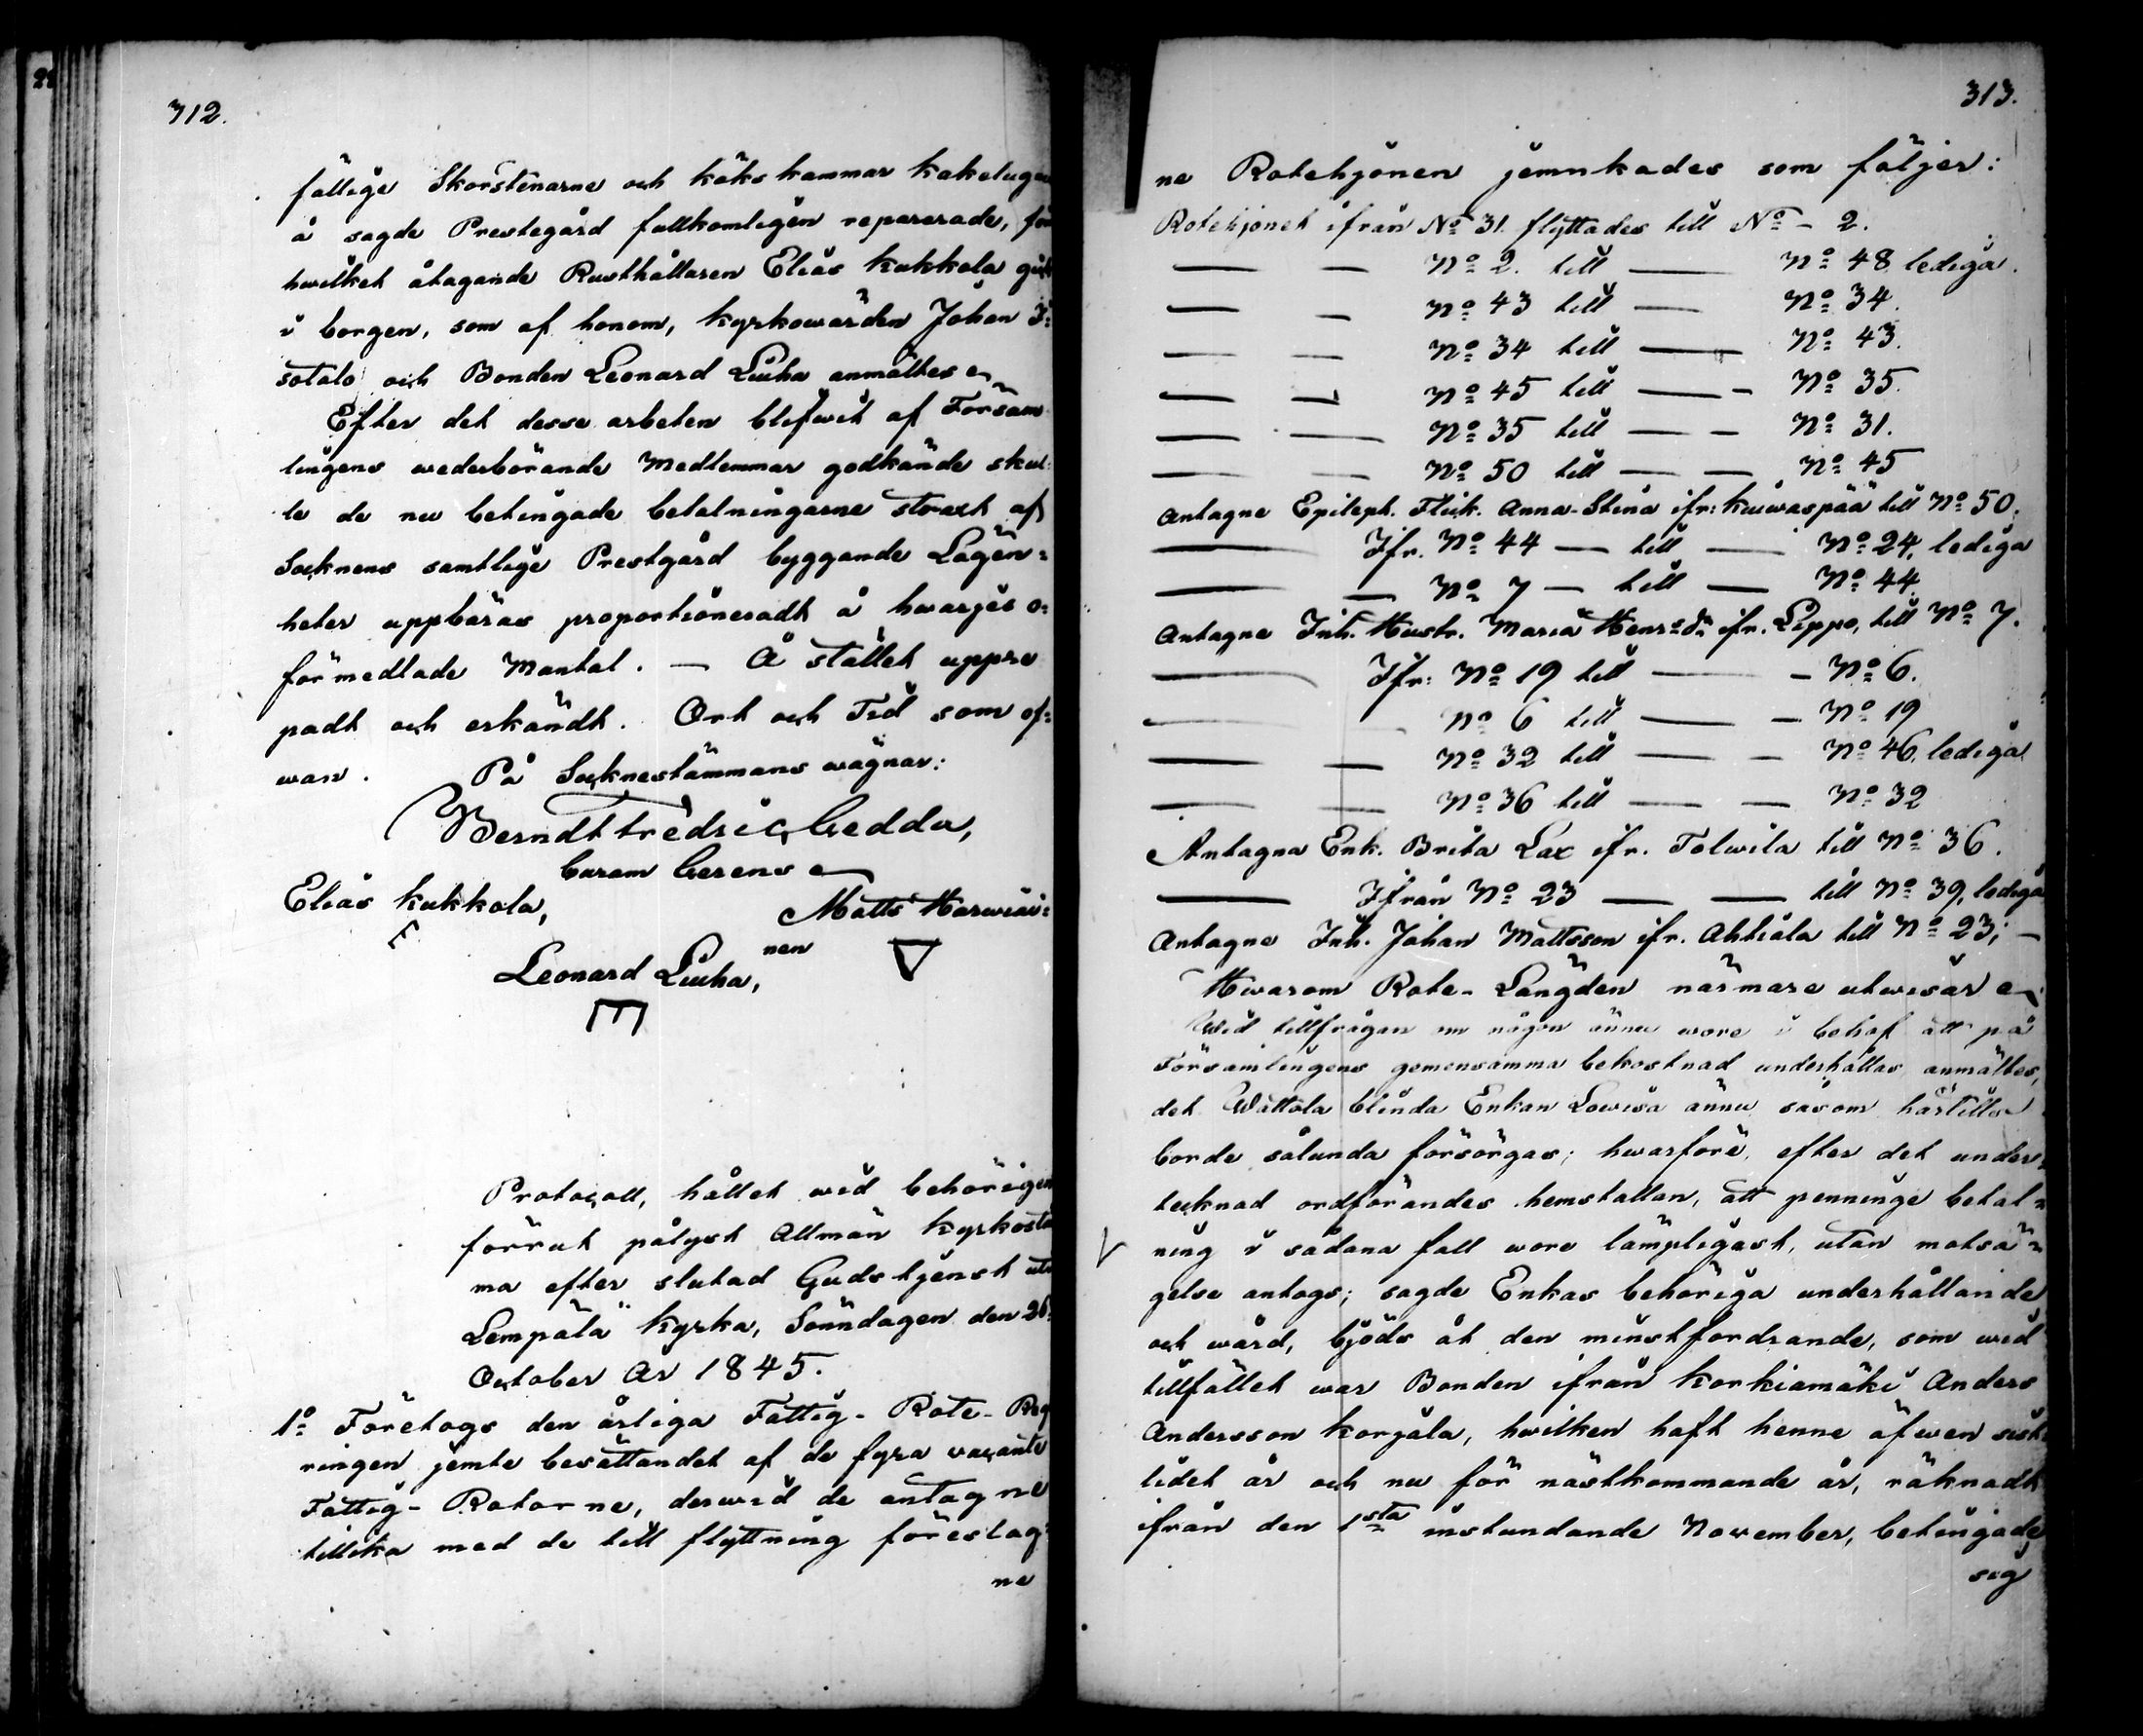 312.
fällige Skorstenarne och kökskammar kakelugn
å sagde Prestegård fullkomligen repererade, för
hwilket åtagande Rusthållaren Elias Kukkola gick
i borgen, som af honom, Kyrkowärden Johan I-
sotalo och Bonden Leonard Liuha anmältes.
Efter det desse arbeten blifwit af Försam-
lingens wederbörande Medlemmar godkände skul-
le de nu betingade betalningarne straxt af
Socknens samtlige Prestgård byggande Lägen-
heter uppbäras proportioneradt å hwarjes o-
förmedlade Mantal. — Å stället uppre
padt och erkändt. Ort och Tid som of-
wan. På Socknestämmans wägnar:
Berndt Fredric Gedda,
Curam Gerens
Elias Kukkola, Matts Harwiai-
nen
Leonard Liuha,
Protocoll, hållet wid behörigen
förrut pålyst Allmän Kyrkostä
ma efter slutad Gudstjenst uti
Lempälä Kyrka, Sönndagen den 26.
October År 1845.
1o Företogs den årliga Fattig-Rote-Reg
ringen jemte besättandet af de fyra vacante
Fattig-Rotorne, derwid de antagne
tillika med de till flyttning föreslag-
ne
313.
ne Rotehjonen jemnkades som följer:
Rotehjonet ifrån No 31. flyttades till No - 2.
— — No 2. till — No 48 lediga.
— — No 43 till — No 34.
— — No 34 till — No 43.
— — No 45 till — — No 35.
— — No 35 till — — No 31.
— — No 50 till — — No 45
Antagne Epilept. Flick. Anna-Stina ifr: Kuiwaspää till No 50.
— Ifr. No 44 — till — No 24, lediga
— — No 7 — till — No 44.
Antagne Inh. Hustr. Maria Henrsdr ifr. Lippo, till No 7.
— Ifr: No 19 till — — No 6.
— No 6 till — — No 19
— — No 32 till — — No 46, lediga
— — No 36 till — — No 32
Antagna Enk. Brita Lax ifr. Tolwila till No 36.
— Ifrån No 23 — — till No 39, lediga
Antagne Inh. Johan Mattsson ifr. Ahtiala till No 23; —
Hwarom Rote-Längden närmare utwisar
Wid tillfrågan om någon ännu wore i behof att på
Församlingens gemensamma bekostnad underhållas anmältes,
det Wattola blinda Enkan Lowisa ännu såsom härtills
borde sålunda försörgas; hwarföre, efter det under-
tecknad ordförandes hemställan, att penninge betal-
ning i sådana fall wore lämpligast, utan motsä-
gelse antogs; sagde Enkas behöriga underhållande
och wård, bjöds åt den minstfordrande, som wid
tillfället war Bonden ifrån Korkiamäki Anders
Andersson Korjala, hwilken haft henne äfwen sist
lidet år och nu för nästkommande år, räknadt
ifrån den 1sta instundande November, betingade
sig